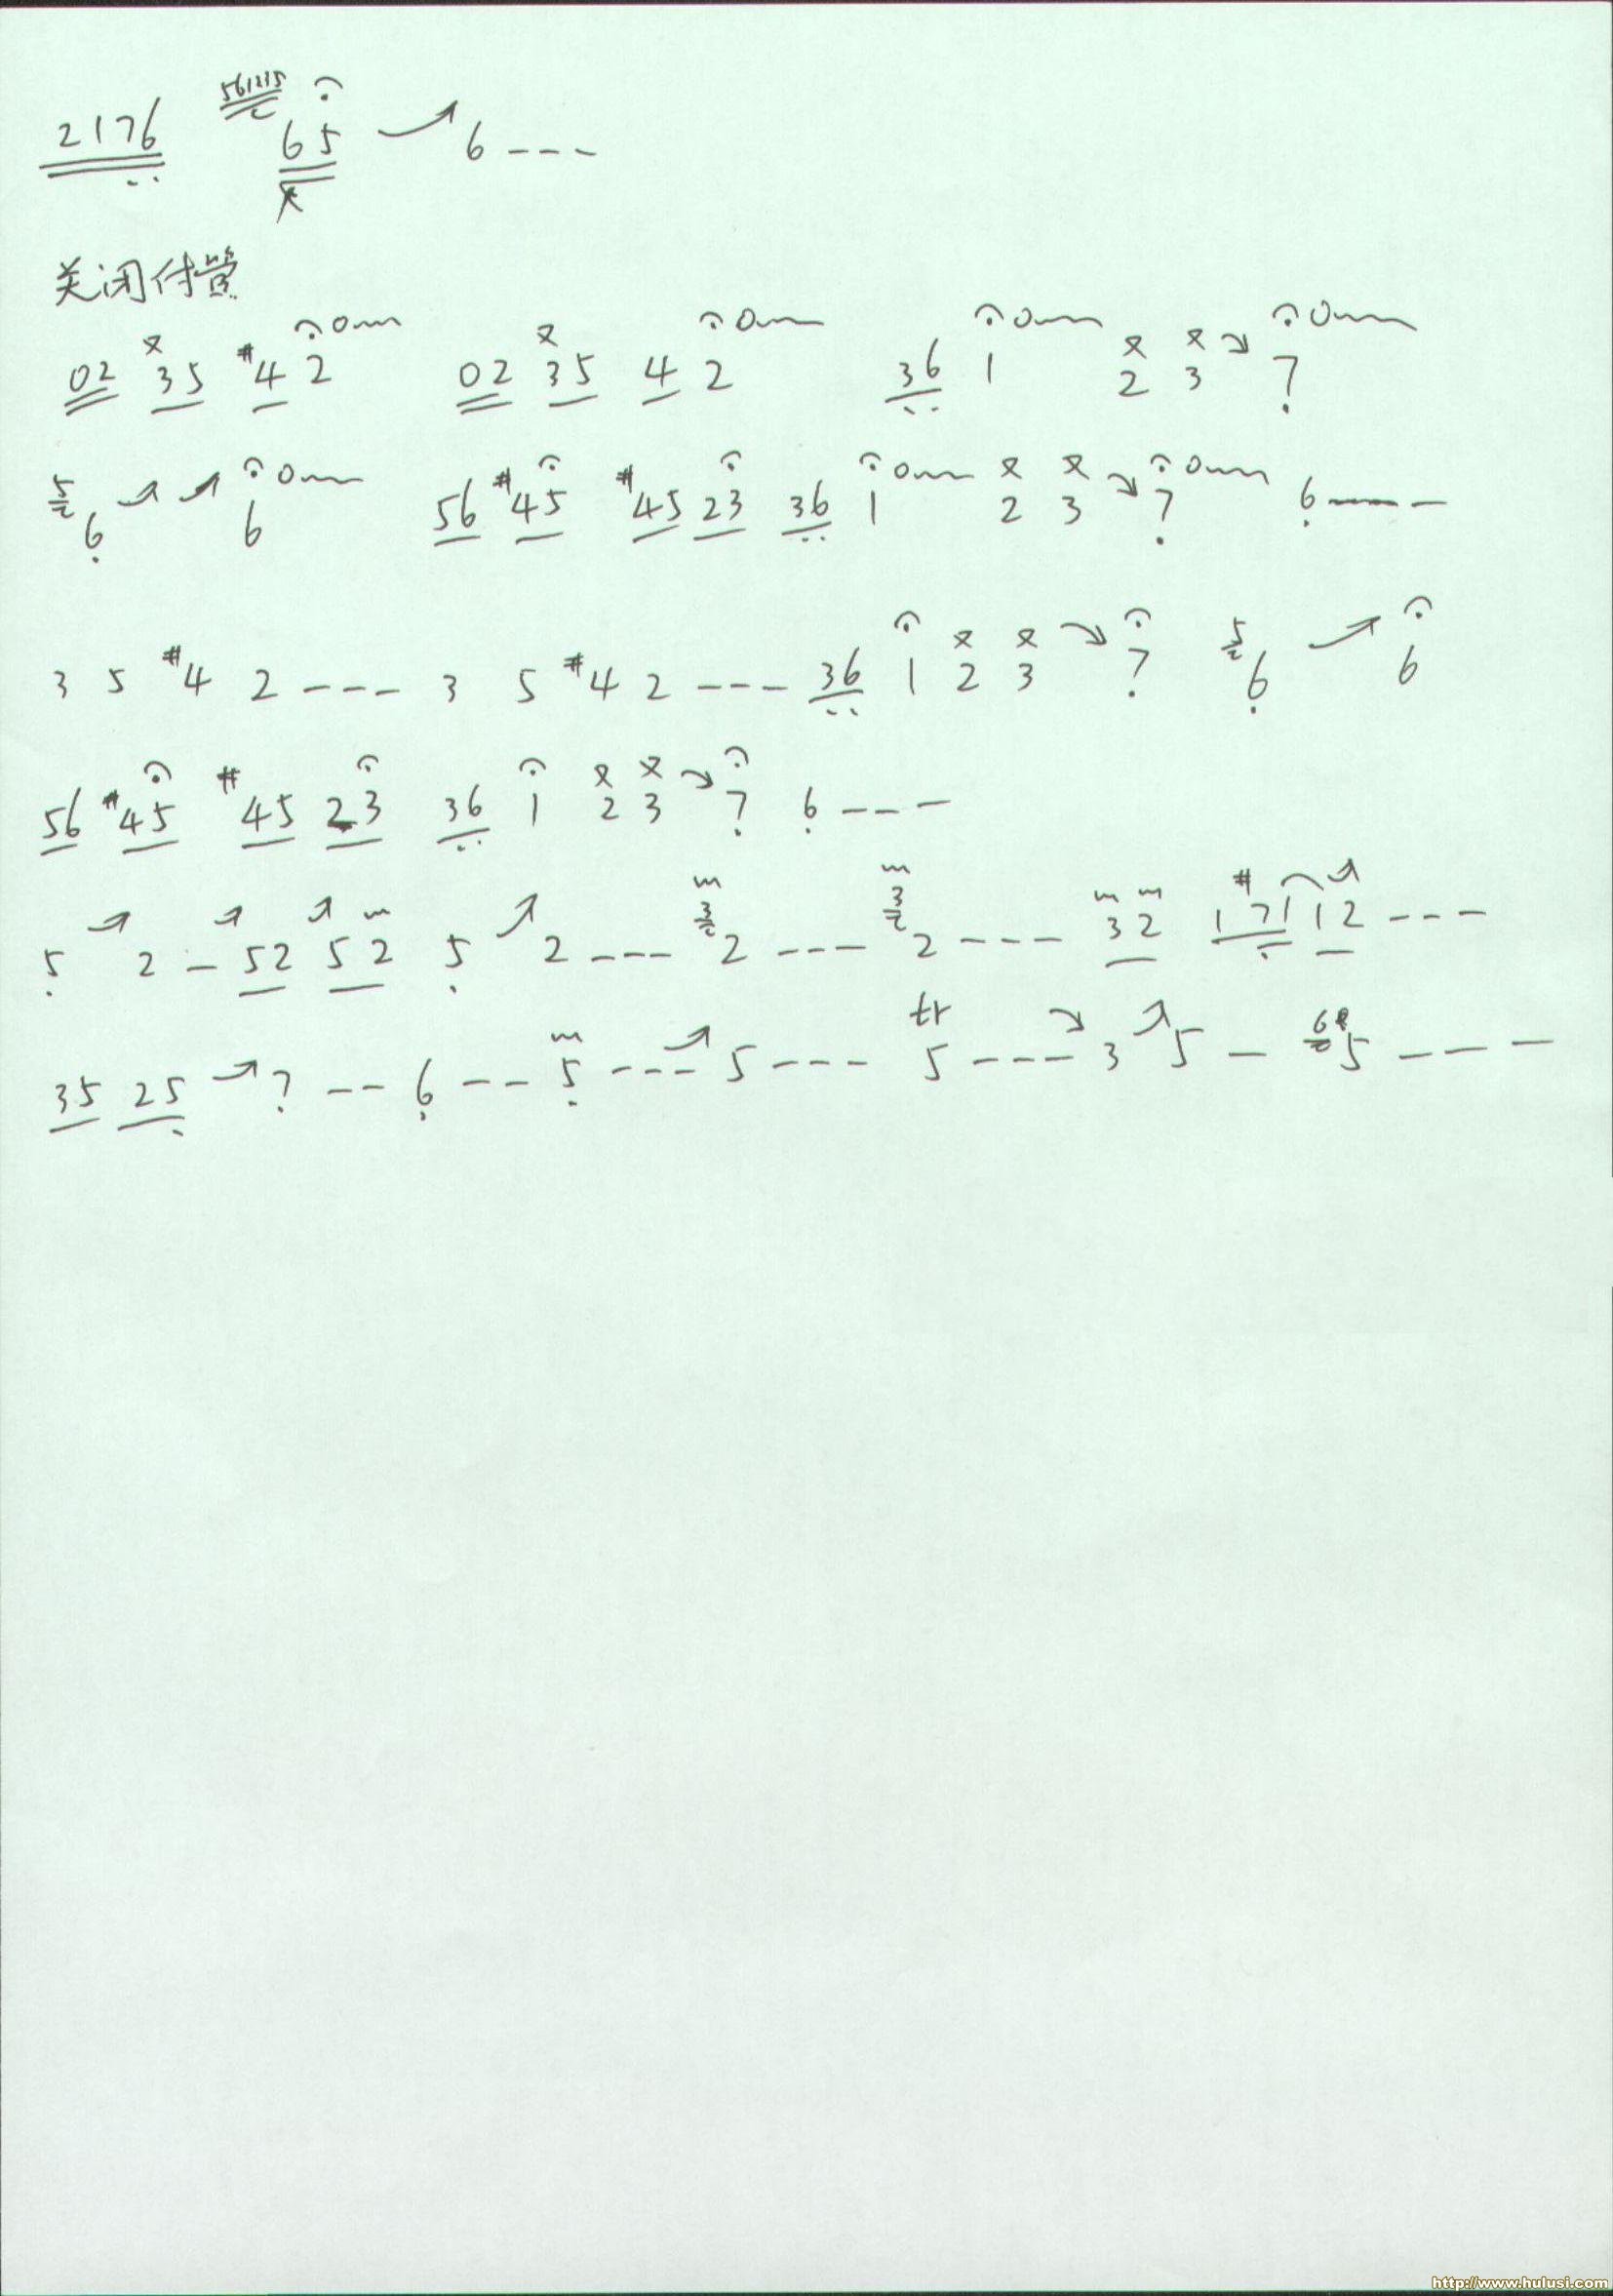 2176 561235 65 6 - - -
关闭付管
02 35 #4 2 02 35 4 2 36 1 2 3 7
5 6 6 56 #45 #45 23 36 1 2 3 7 6 - - -
3 5 #4 2 - - - 3 5 #4 2 - - - 36 1 2 3 7 5 6 6
56 #45 #45 23 36 1 2 3 7 6 - - -
5 2 - 52 52 5 2 - - - 3 2 - - - 3 2 - - - 32 1 #71 12 - - -
35 25 7 - - 6 - - 5 - - - 5 - - - tr 5 - - - 3 5 - 6 5 - - -
http://www.hulusi.com